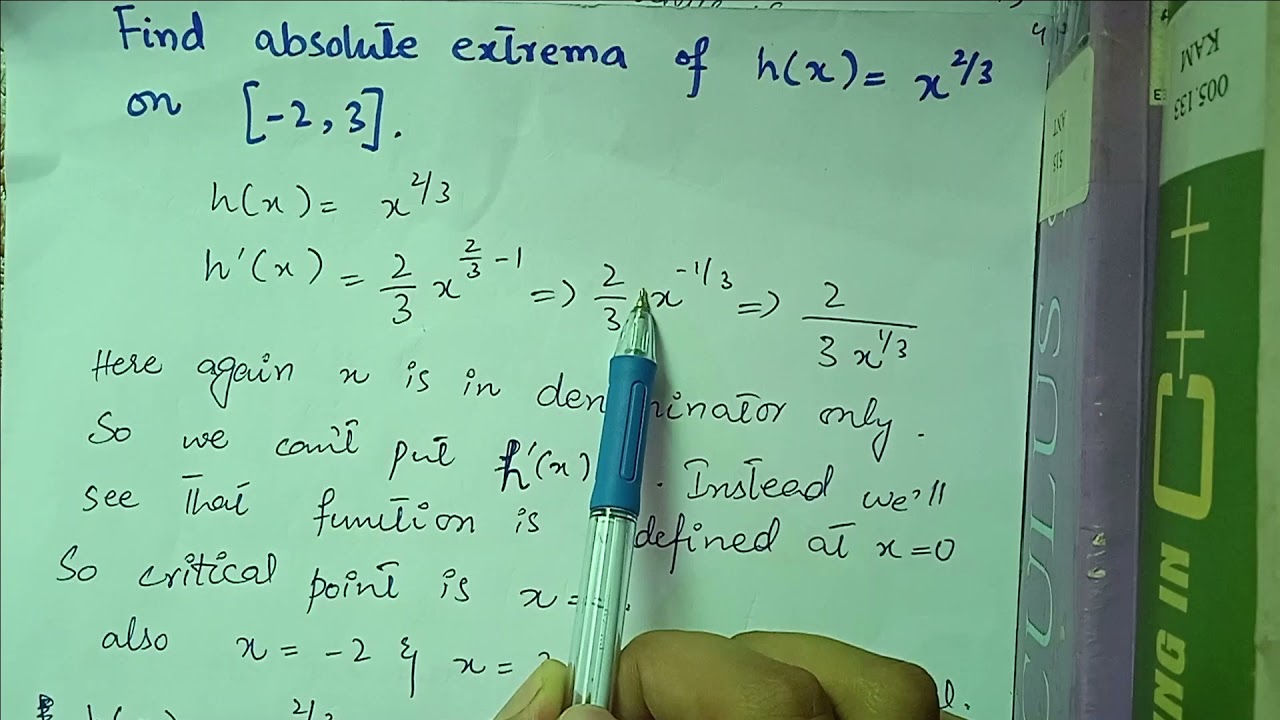 Find absolute extrema of h(x) = x^2/3
on [-2, 3].
h(x) = x^2/3
h'(x) = 2/3 x^(2/3 - 1) => 2/3 x^-1/3 => 2/(3 x^1/3)
Here again x is in den minator only.
So we can't put h'(x) . Instead we'll
see that function is defined at x=0
So critical point is x=
also x = -2 & x =
2/3
CULUS
ANT
515
005.133
KAM
NG IN C++